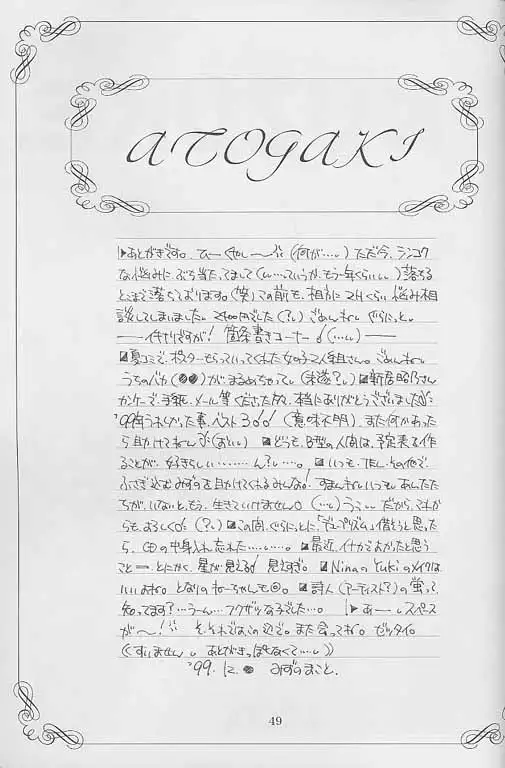 ATOGAKI
▶あとがきです。ひーくやしーッ!!(何が…。)ただ今、シンコク
な悩みに、ぶち当たってまして(…っていうか、もう一年くらい)落ちる
とこまで落ちております。(笑)この前も、相方に2Hくらい悩み相
談してしまいました。2400円でした(?)ごめんねー ぐらにっと。
――イキナリですが!箇条書きコーナー!(…)――
夏コミで、ポスターもらっていってくれた女の子2人組さん。ごめんねー
うちのバカ(●●)がまるめちゃって(未遂?)新居昭乃さん
カンケーで、手紙、メール等くださった方、本当にありがとうございました
'99年うれしかった事、ベスト3!(意味不明)また何かあった
ら助けてねーん(おい)どうも、B型の人間は、予定表を作
ることが、好きらしい……ん?…。いつも、TEL、その他で、
ふさぎ込むみずのを助けてくれるみんな!すまんねーいつも。あんたた
ちが、いないと、もう、生きていけません。(…)うっ…だから、これか
らも、よろしく(?)この間、ぐらにっとに、「デュープリズム」借そうと思った
ら、CDの中身入れ忘れた………。最近、イナカでよかったと思う
こと＝とにかく、星が見える!見えすぎ。NinaのYukiのメイクは、
いいよねー。となりのねーちゃんも◎。詩人(アーティスト?)の蛍って、
知ってます?…うーん…フクザツな子でした…。▶あーースペース
が〜!!そ、それではこの辺で。また会ってね。ゼッタイ。
((すいません。あとがきっぽくなくて…))
'99.12.● みずのまこと.
49